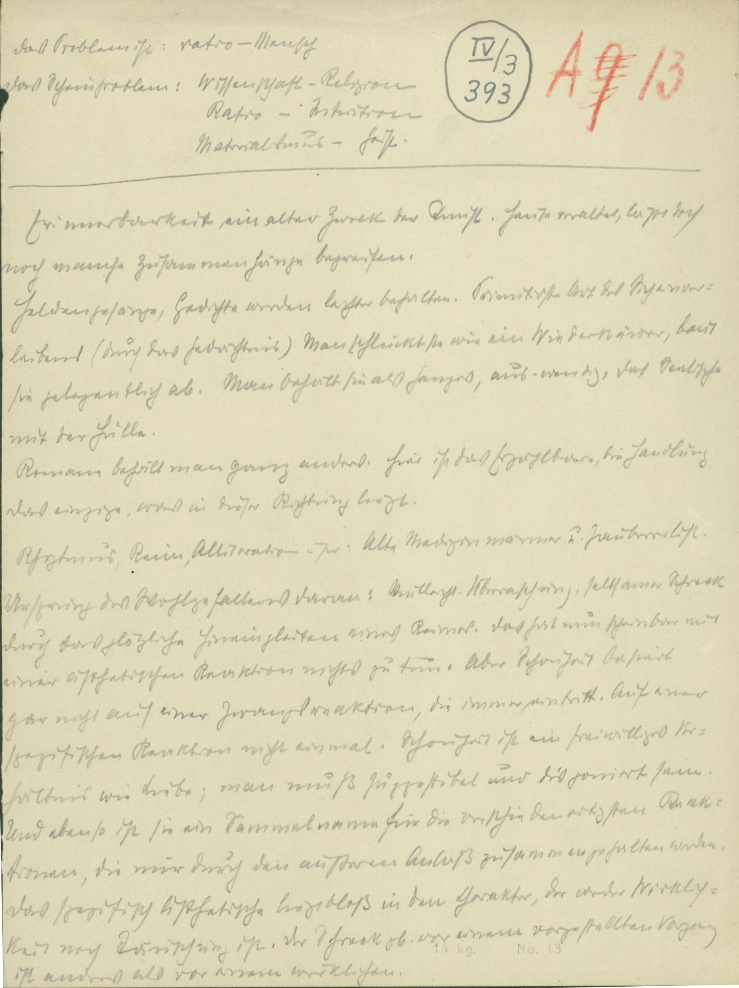 das Problem ist: ratio – Mensch
das Scheinproblem: Wissenschaft – Religion
Ratio – Intuition
Materialismus – Geist.
IV/3
393
A 9 13
Erinnerbarkeit ein alter Zweck der Kunst. Heute veraltet, läßt doch
noch manche Zusammenhänge begreifen.
Heldengesänge, Gedichte werden leichter behalten. Primitivste Art des
leibens (durch das Gedächtnis) Man schluckt sie wie ein Wiederkäuer, kaut
sie gelegentlich ab. Man behält sie als Ganzes, aus-wendig, das Seelische
mit der Hülle.
Romane behält man ganz anders. Hier ist das Erzählbare, die Handlung
das einzige, was in dieser Richtung liegt.
Rhytmus, Reim, Alliteration usw: Alte Medizinmänner u. Zauberer
Ursprung des Wohlgefallens daran: Vielleicht Überraschung, seltsamer Schreck
durch das plötzliche Hineingleiten eines Reimes. Das hat nun scheinbar mit
einer ästhetischen Reaktion nichts zu tun. Aber Schönheit basiert
gar nicht auf einer Zwangsreaktion, die immer eintritt. Auf einer
spezifischen Reaktion nicht einmal. Schönheit ist ein freiwilliges Ver=
hältnis wie Liebe; man muß suggestibel und disponiert sein.
Und ebenso ist sie ein Sammelname für die verschiedenartigsten Reak=
tionen, die nur durch den äußeren Anlaß zusammengehalten werden.
Das spezifisch Ästhetische liegt bloß in dem Charakter, der weder Wirklich=
keit noch Täuschung ist. Der Schreck zb. vor einem vorgestellten Vorgang
ist anders als vor einem wirklichen.
14 kg. No. 13